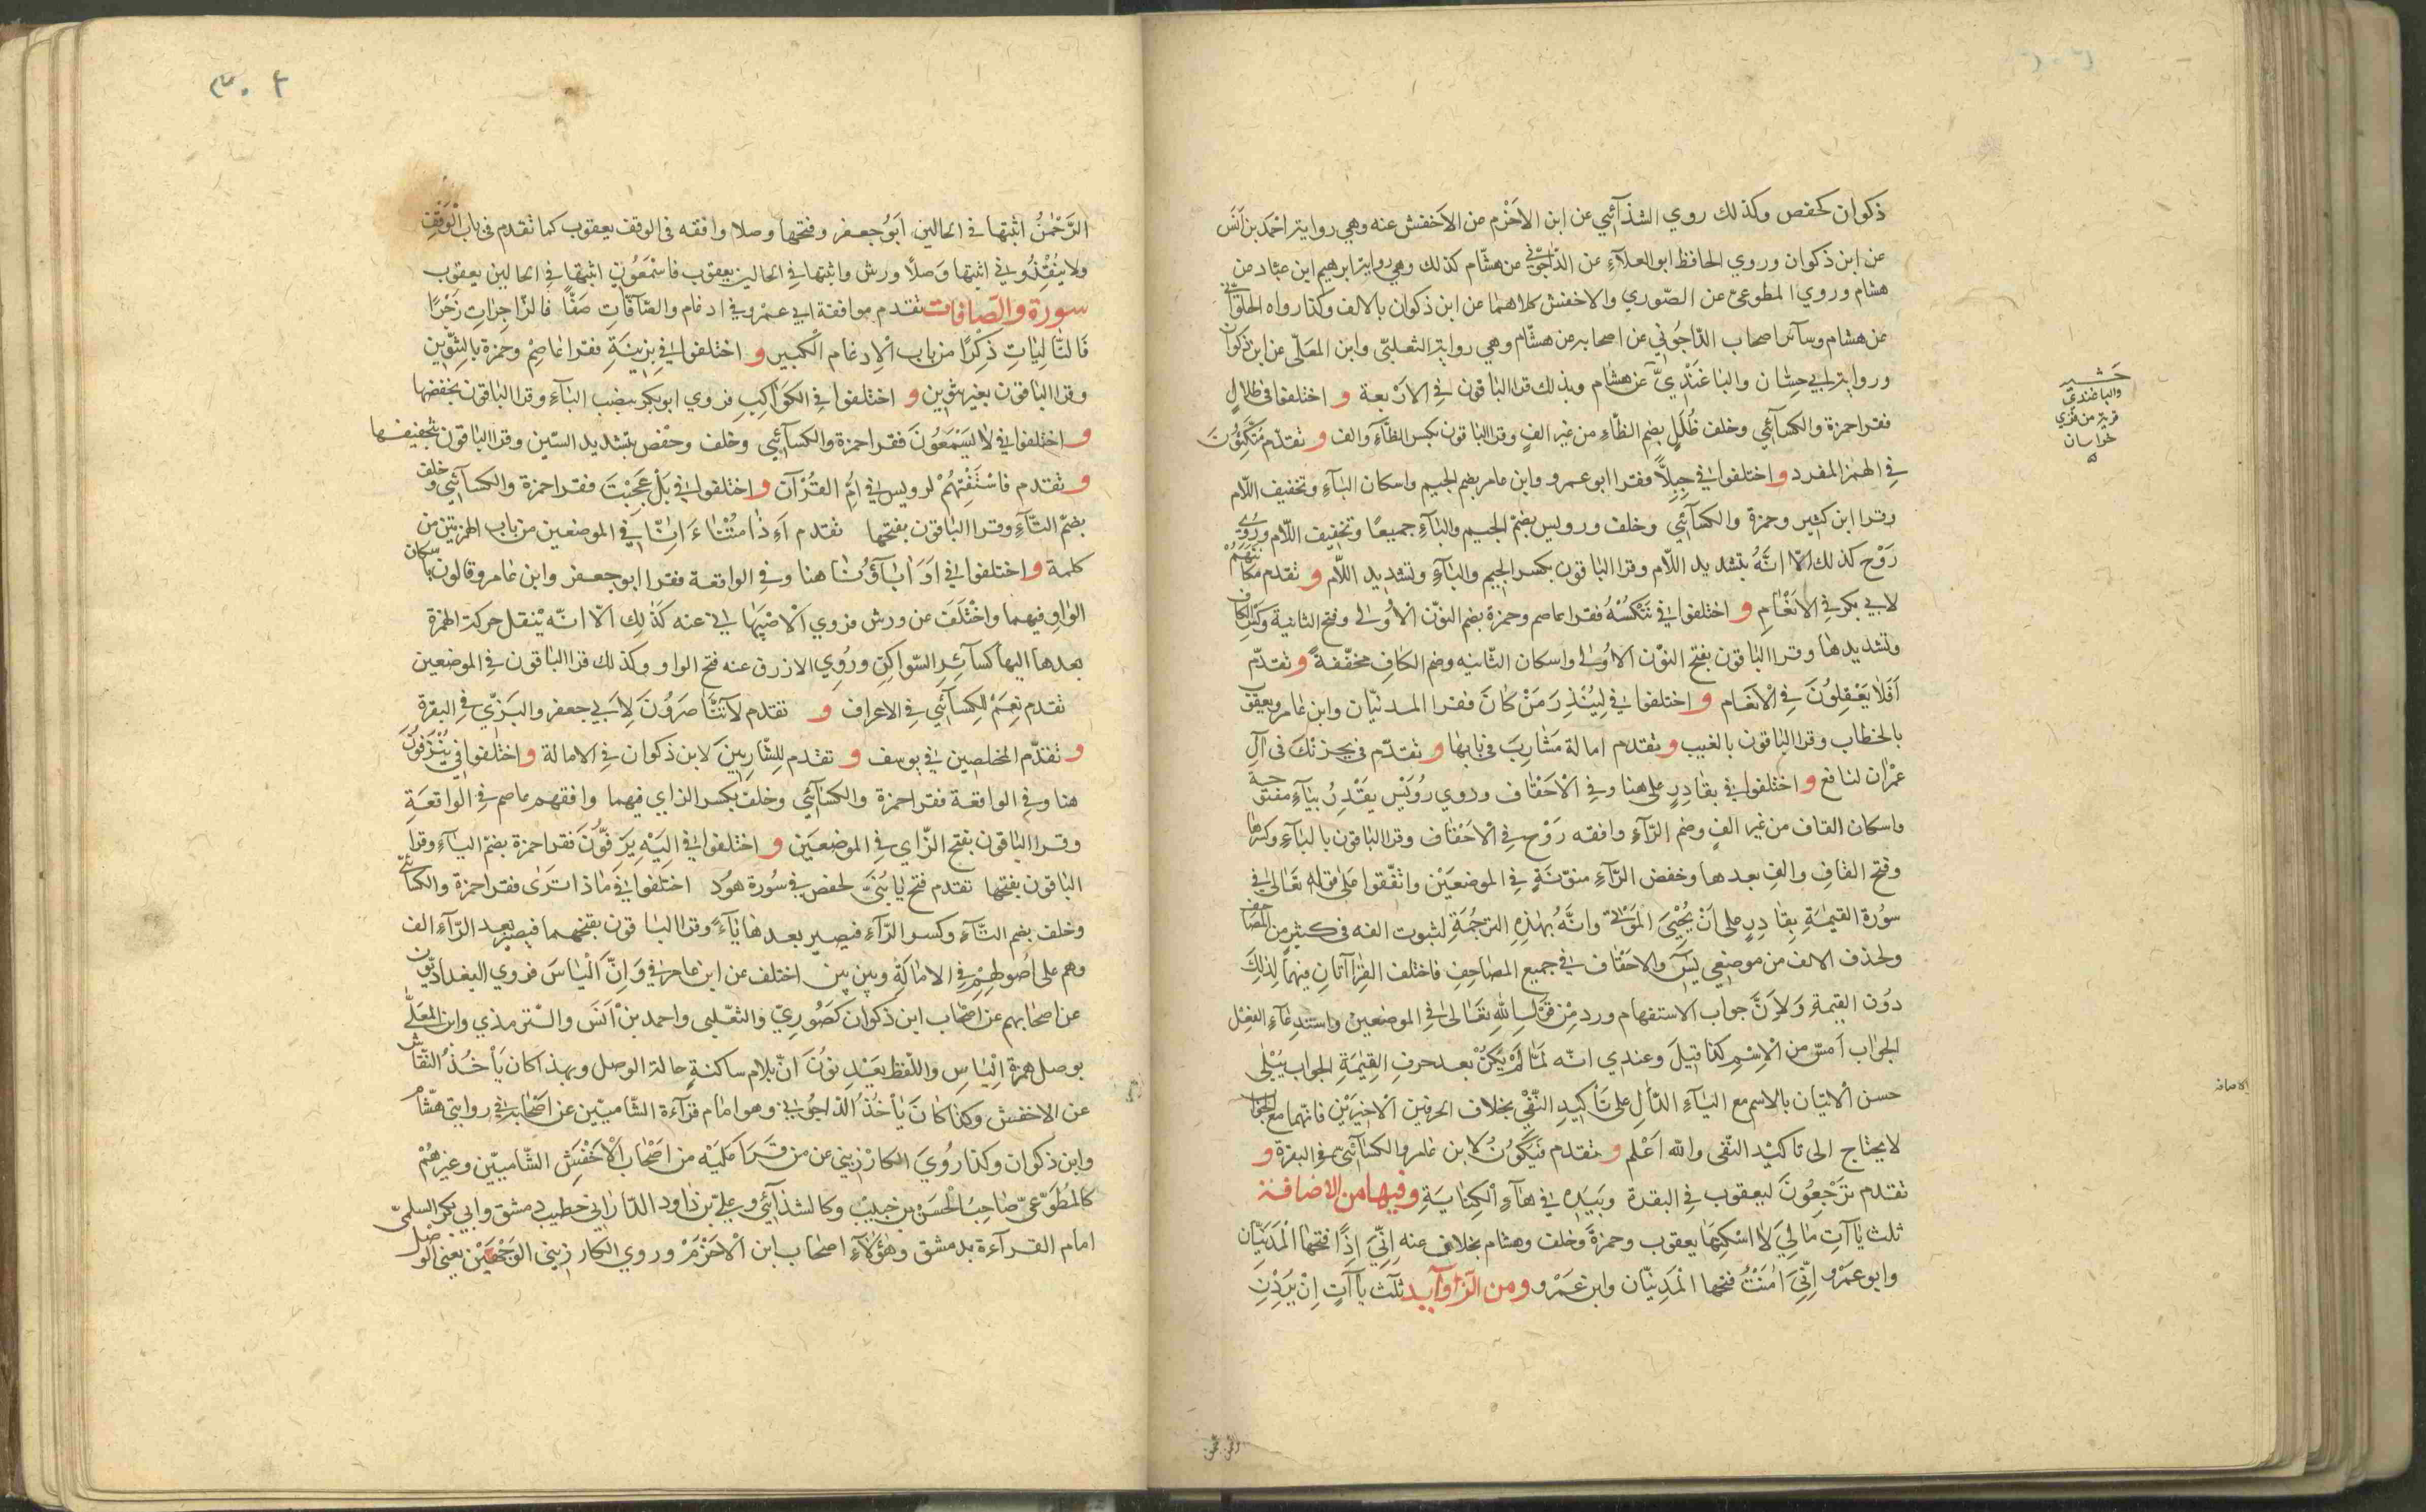 ذكوان كحفص وكذلك روي الشذآئي عن ابن الاخرم من الاخفش عنه وهي رواية احمد بن انس
عن ابن ذكوان وروي الحافظ ابو العلآء عن الدّاجوني عن هشّام كذلك وهي رواية ابرهيم ابن عباد عن
هشام وروي المطوعي عن الصّوري والاخفش كلاهما عن ابن ذكوان بالالف وكذا رواه الحلوآني
عن هشام وسآئر اصحاب الدّاجوني عن اصحابه عن هشّام وهي رواية الثعلبي وابن المعلّى عن ابن ذكوان
ورواية ابي حسّان والباغندي عن هشام وبذلك قرا الباقون في الاربعة و اختلفوا في ظلال
فقرا حمزة والكسآئي وخلف ظُلَلٍ بضم الظآء من غير الفٍ وقرا الباقون بكسر الظآء والف و تقدّم متكئون
في الهمز المفرد و اختلفوا في جبلًّا فقرا ابو عمرو وابن عامر بضم الجيم واسكان البآء وتخفيف اللّام
وقرا ابن كثير وحمزة والكسآئي وخلف ورويس بضمّ الجيم والبآء جميعًا وتخفيف اللّام وروي
رَوْح كذلك الّا انّه بتشديد اللّام وقرا الباقون بكسر الجيم والبآء وتشديد اللّام و تقدم مكانتهم
لابي بكر في الانعام و اختلفوا في ننكسه فقرا عاصم وحمزة بضم النوّن الاُولى وفتح الثانية وكسر الكاف
وتشديدها وقرا الباقون بفتح النوّن الاُولى واسكان الثّانيه وضم الكاف مخفّفةً و تقدّم
اَفَلا يَعْقِلُونَ في الْانعام و اختلفوا في لِيُنْذِرَ مَنْ كَانَ فقرا المدنيّان وابن عامر ويعقوب
بالخطاب وقرا الباقون بالغيب و تقدم امالة مَشَارِبَ في بابها و تقدّم في يحزنك في آل
عمْران لنافع و اختلفوا في بقادرٍ على هنا وفي الْاحْقاف وروي رُوَيْس يقْدِرُ بيآءٍ مفتوحة
واسكان القاف من غير الفٍ وضم الرّآءِ وافقه رَوْح في الْاحْقاف وقرا الباقون بالبآءِ وكسرها
وفتح القافِ والفٍ بعدها وخفض الرّآءِ منوّنةٍ في الموضعَيْن واتّفقوا على قوله تعالى في
سورة القيمةِ بِقادِرٍ على اَنْ يُحْيِيَ الموْتى وانّه بهذه الترجمة لثبوت الفه في كثير من المصاحف
ولحذف الالف من موضعي يسٓ والاحقاف في جميع المصاحف فاختلف القرآتان فيهما لذلك
دون القيمة ولانّ جواب الاستفهام ورد من قول الله تعالى في الموضعين واستدعآء الفعل
الجواب امسّ من الاسم كذا قيل وعندي انّه لمّا لم يكن بعد حرف القيمة الجواب ببلى
حسن الْاتيان بالاسم مع البآء الدّال على تاكيد النّفي بخلاف الحرفين الْاخيرين فانهما مع الجواب
لا يحتاج الى تاكيد النّفى والله اَعْلم و تقدم فيكونُ لابن عامر والكسآئي في البقرة و
تقدم تَرْجِعُونَ ليعقوب في البقرة وبيده في هآءِ الكنايةِ وفيها من الاضافة
ثلث يآآتِ مالي لا اسكنها يعقوب وحمزة وخلف وهشام بخلاف عنه اِنّي اِذًا فتحها المدنيّان
وابو عمرو اِنّي اٰمنتُ فتحها المدنيّان وابن عمرو ومن الزّوآيد ثلث يآآتٍ اِنْ يُرِدْنِ
حَشبر
والباغندي
قرية من قري
خواسان
ه
الاضافه
الرّحمن
٣٠٢
الرَّحْمٰنُ اثبتها في الحالين ابُو جعفر وفتحها وصلا وافقه فى الوقف يعقوب كما تقدم فى باب الْوَقْف
ولا ينْقِذُونِ اثبتها وَصلًا ورش واثبتها في الحالين يعقوب فاسمعُون اثبتها في الحالين يعقوب
سورة والصّافات تقدم موافقة ابي عمْرو في ادغام والصّآفّاتِ صَفًّا فالزّاجراتِ زَجْرًا
فَالتَّالِيَاتِ ذِكْرًا من باب الْادغام الْكبير و اختلفوا في بزينةٍ فقرا عاصم وحمزة بالتنوين
وقرا الباقون بغير تنوين و اختلفوا في الكواكب فروي ابو بكر بنصب البآء وقرا الباقون بخفضها
و اختلفوا في لا يَسَّمَّعُونَ فقرا حمزة والكسآئي وخلف وحفْص بتشديد السّين وقرا الباقون بتخفيفها
و تقدم فاستفتهم لرويس في امِّ القرآن و اختلفوا في بَلْ عَجِبْتَ فقرا حمزة والكسآئي وخلف
بضمّ التّآءِ وقرا الباقون بفتحها تقدم اَءِذَا متْنا ءَاِنّا في الموضعين من باب الهمزتين من
كلمة و اختلفوا في اَوَ اٰبآؤُنا هنا وفي الواقعة فقرا ابو جعفر وابن عامر وقالون باسكان
الواو فيهما واخْتلَفَ عن ورش فروي الْاصْبهاني عنه كذلك الّا انّه ينقل حركة الهمزة
بعدها اليها كسآئر السّواكن ورُوي الازرق عنه فتح الواو وكذلك قرا الباقون في الموضعين
تقدم نعِمْ للكسآئي في الاعراف و تقدم لا تّناصرُونَ لابي جعفر والبزّي في البقرة
و تقدّم المخلصين في يوسف و تقدم لِلشّاربينَ لابن ذكوان في الامالة و اختلفوا في يُنْزَفونَ
هنا وفي الواقعة فقرا حمزة والكسآئي وخلف بكسر الزاي فيهما وافقهم عاصم في الواقعة
وقرا الباقون بفتح الزّاي في الموضعَين و اختلفوا في اِليْه يَزفّونَ فقرا حمزة بضمّ اليآءِ وقرا
الباقون بفتحها تقدم فتح يا بُنَيَّ لحفص في سُورة هُود اختلفوا في ماذا تَرَى فقرا حمزة والكسآئي
وخلف بضم التّآءِ وكسر الرّآءِ فيصير بعدها يآءً وقرا الباقون بفتحهما فيصير بعد الرّآءِ الف
وهم على اُصُولهم في الامالة وبين بين اختلف عن ابن عامر في وَاِنَّ الْياسَ فروي البغداديّون
عن اصحابهم عن اصحاب ابن ذكوان كصُوريّ والثعلبي واحمد بن اَنَس والترمذي وابن المعلّى
بوصل همزة الْياسِ واللّفظ بعَيْد نون انّ بلام ساكنةٍ حالة الوصل وبهذا كان يَأخُذُ النّقاش
عن الاخفش وكذا كان ياخذ الدّاجوني وهو امام قرآءة الشّاميّين عن اصحابه في روايتي هشام
وابن ذكوان وكذا رُويَ الكارزيني عن من قرا عليْه من اَصْحاب الْاَخْفَشِ الشّاميّين وغيرهُمْ
كالمُطّوّعيّ صَاحِبُ الْحَسن بن حبيب وكالشذآئي وعليّ بن داود الدّاراني خطيب دمشق وابي بكر السلمي
امام القرآءة بدمشق وهٰؤلآءِ اصحاب ابن الْاخرمْ وروي الكارزيني الوَجْهَيْن يعني الوصل